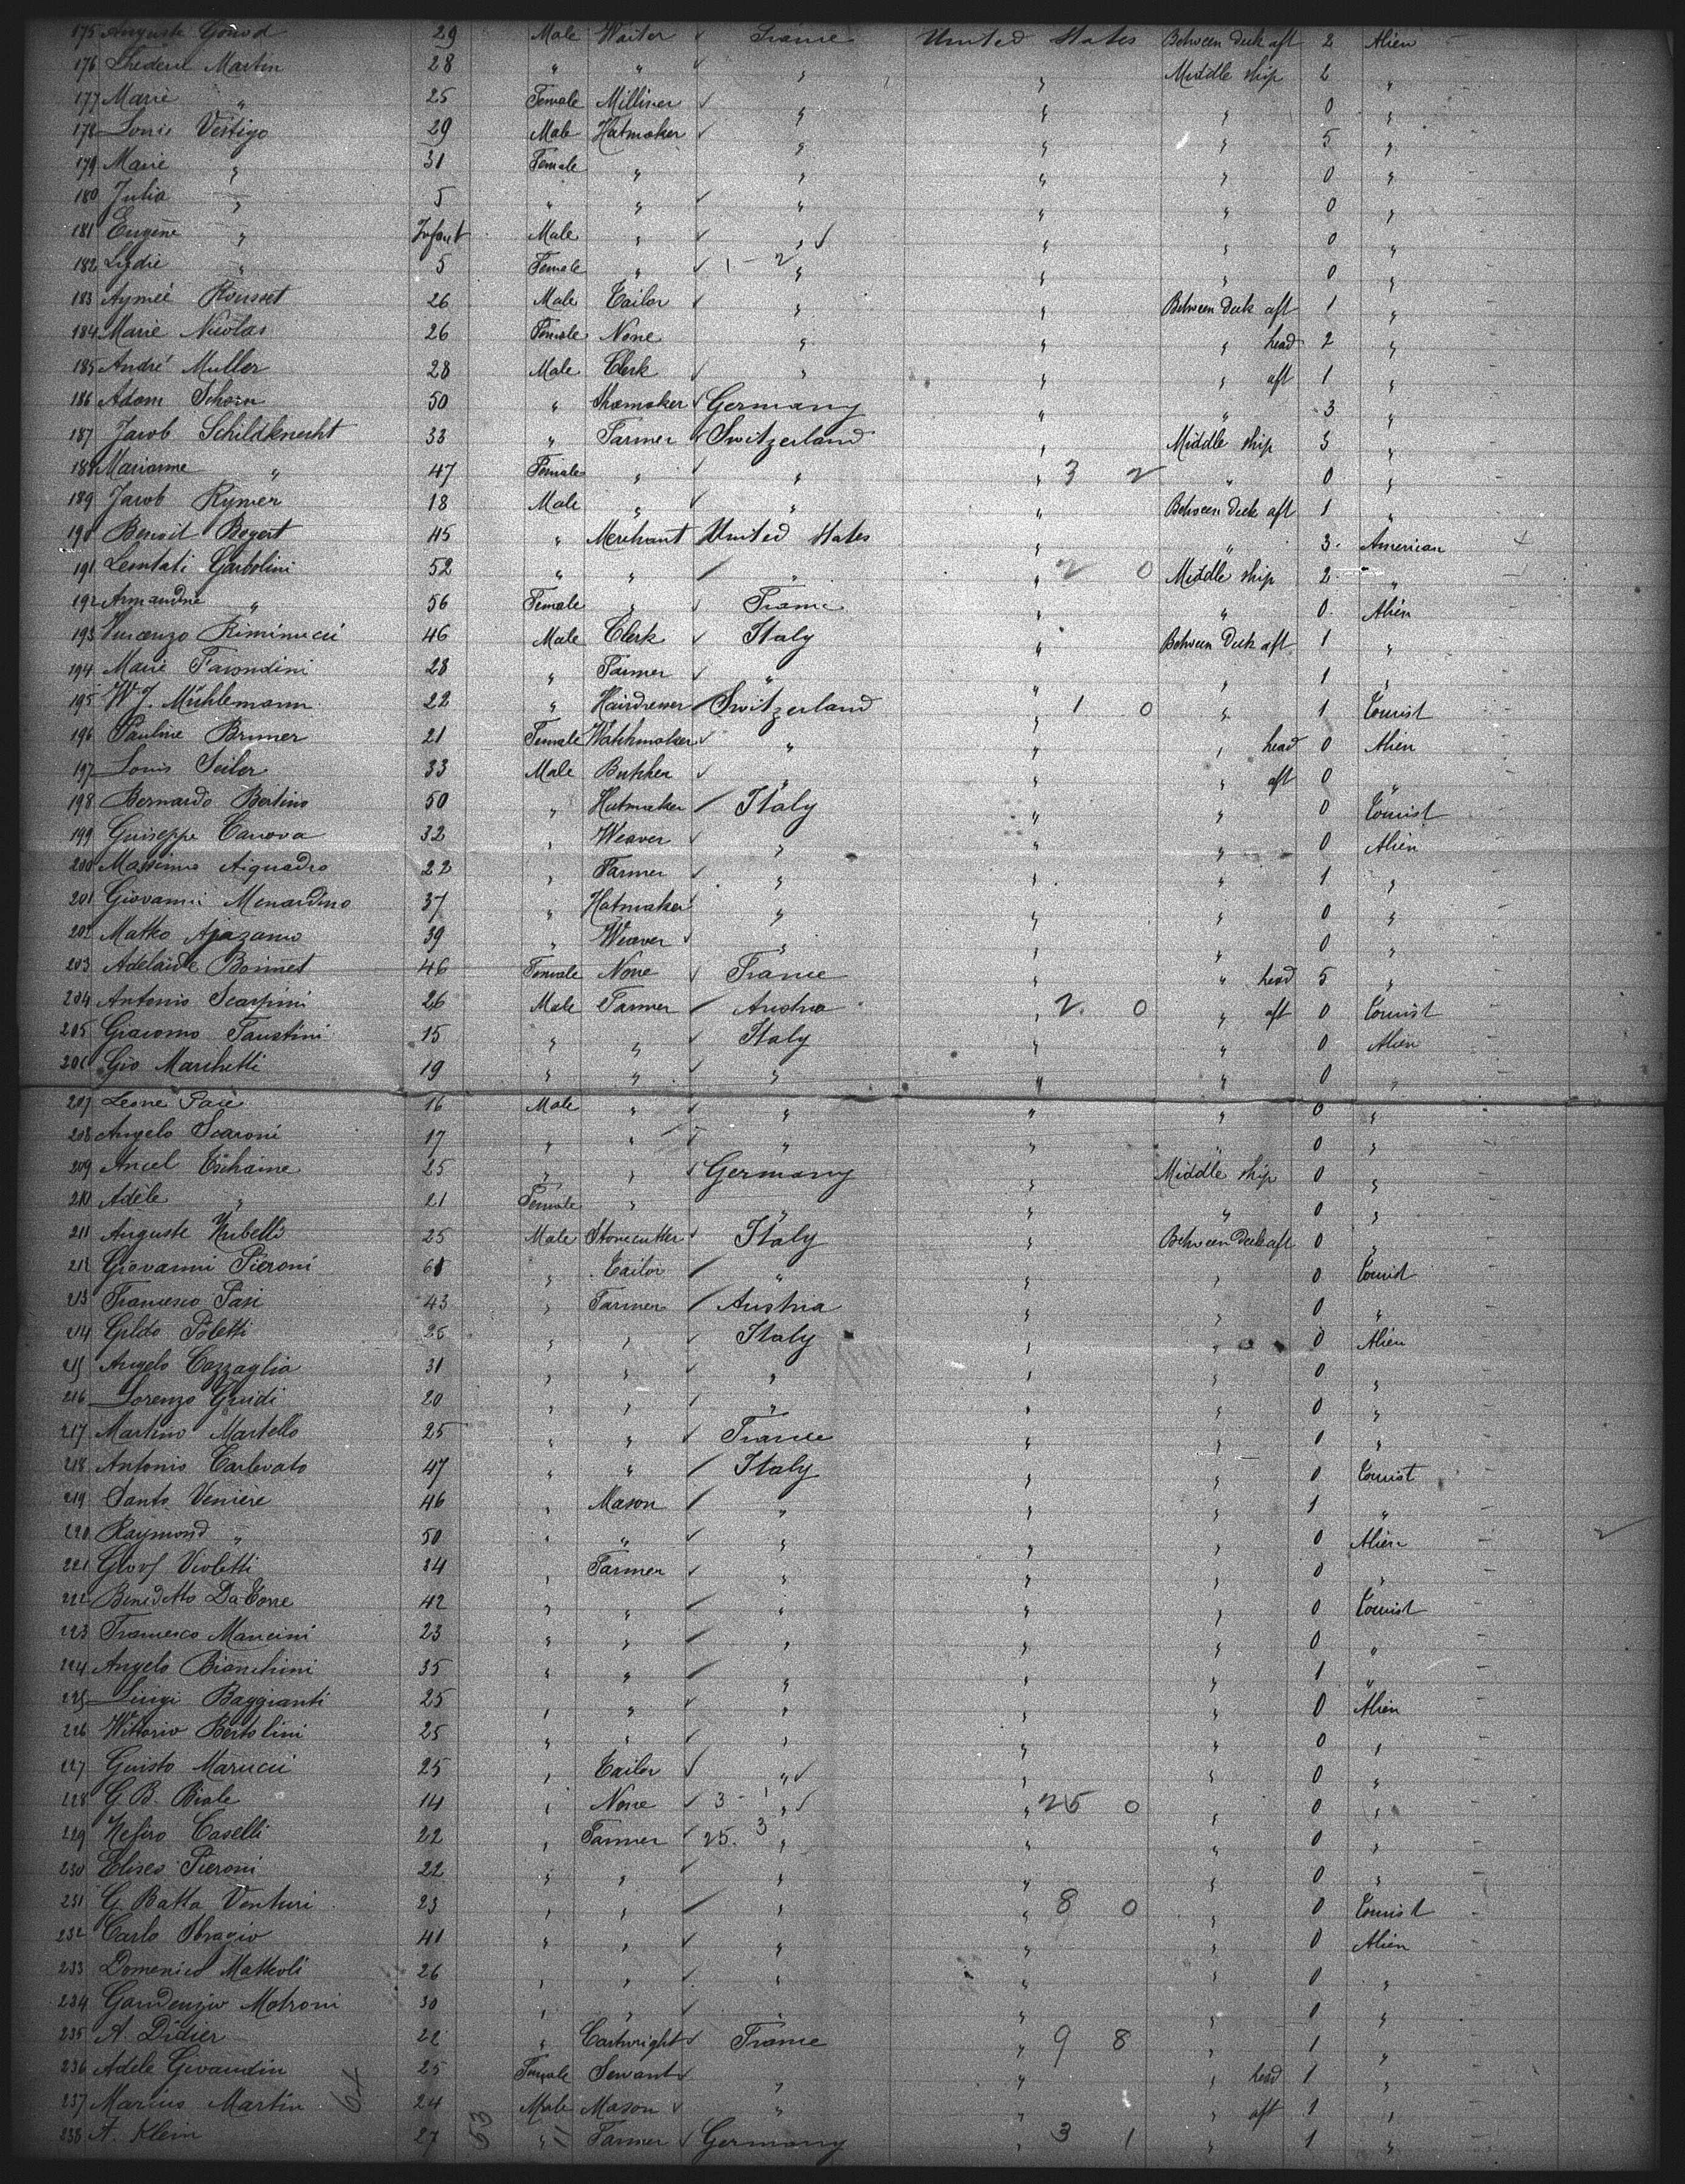 175 Auguste Gonod 29 Male Waiter ✓ France United States Between deck aft 2 Alien
176 Martin 28 " " ✓ " " Middle ship 2 "
177 Marie " 25 Female Milliner ✓ " " " 0 "
178 Louis Vestigo 29 Male Hatmaker ✓ " " " 5 "
179 Marie " 31 Female " " " " 0 "
180 Julia " 5 " " ✓ " " " 0 "
181 Eugène " Infant Male " ✓ " ✓ " " 0 "
182 Lydie " 5 Female " ✓ 1 - 2 " " " 0 "
183 Aymeé Rousset 26 Male Tailor ✓ " " Between deck aft 1 "
184 Marie Nicolas 26 Female None " " " head 2 "
185 André Muller 28 Male Clerk ✓ " " " aft 1 "
186 Adam Schorn 50 " Shoemaker ✓ Germany " " 3 "
187 Jacob Schildknecht 33 " Farmer ✓ Switzerland " Middle ship 3 "
188 Marianne " 47 Female " ✓ " " 3 2 " 0 "
189 Jacob Rymer 18 Male " ✓ " " Between deck aft 1 "
190 Benoit Bogert 45 " Merchant United States " " 3 American
191 Garbolini 52 " " ✓ " " 2 0 Middle ship 2 "
192 Armandine " 56 Female " ✓ France " " 0 Alien
193 Vincenzo Riminucci 46 Male Clerk ✓ Italy " Between deck aft 1 "
194 Marie Farondini 28 " Farmer ✓ " " " 1 "
195 W. J. Mühlemann 22 " Hairdresser ✓ Switzerland " 1 0 " 1 Tourist
196 Pauline Brunner 21 Female Watchmaker ✓ " " " head 0 Alien
197 Louis Seiler 33 Male Butcher ✓ " " " aft 0 "
198 Bernardo Bertino 50 " Hatmaker ✓ Italy " " 0 Tourist
199 Guiseppe Canova 32 " Weaver ✓ " " " 0 Alien
200 Massimo Aquadro 22 " Farmer ✓ " " " 1 "
201 Giovanni Menardino 37 " Hatmaker ✓ " " " 0 "
202 Matko 39 " Weaver ✓ " " " 0 "
203 Adelaïde Bonnet 46 Female None ✓ France " " head 5 "
204 Antonio Scarpini 26 Male Farmer ✓ Austria " 2 0 " aft 0 Tourist
205 Giacomo Faustini 15 " " ✓ Italy " " 0 Alien
206 Gio Marchetti 19 " " ✓ " " " 0 "
207 Leone Pace 16 Male " ✓ " " " 0 "
208 Angelo Scaroni 17 " " ✓ " " " 0 "
209 Ancel 25 " " ✓ Germany " Middle ship 0 "
210 Adèle " 21 Female " " " " 0 "
211 Auguste Nubelli 25 Male Stonecutter ✓ Italy " Between deck aft 0 "
212 Giovanni Pieroni 61 " Tailor ✓ " " " 0 Tourist
213 Francesco Pasi 43 " Farmer ✓ Austria " " 0 "
214 Gildo Poletti 25 " " ✓ Italy " " 0 Alien
215 Angelo Cazzaglia 31 " " ✓ " " " 0 "
216 Lorenzo Guidi 20 " " ✓ " " " 0 "
217 Martino Martello 25 " " ✓ France " " 0 "
218 Antonio Carlevato 47 " " ✓ Italy " " 0 Tourist
219 Santo Venière 46 " Mason ✓ " " " 1 "
220 Raymond " 50 " " ✓ " " " 0 Alien
221 Violetti 34 " Farmer ✓ " " " 0 "
222 Benedetto Da Torre 42 " " ✓ " " " 0 Tourist
223 Francesco Mancini 23 " " ✓ " " " 0 "
224 Angelo Bianchini 35 " " ✓ " " " 1 "
225 Luigi Baggianti 25 " " ✓ " " " 0 Alien
226 Wittorio Bertolini 25 " " ✓ " " " 0 "
227 Guisto Marucci 25 " Tailor ✓ " ✓ " " 0 "
228 G. B. Biale 14 " None ✓ 3 - 1 " ✓ " 25 0 " 0 "
229 Nefiro Caselli 22 " Farmer ✓ 25. 3 " " " 0 "
230 Eliseo Pieroni 22 " " ✓ " " " 0 "
231 G. Batta Venturi 23 " " ✓ " " 8 0 " 0 Tourist
232 Carlo Sbragio 41 " " ✓ " " " 0 Alien
233 Domenico Matteoli 26 " " ✓ " " " 0 "
234 Gaudenzio Motroni 30 " " ✓ " " " 0 "
235 A. Didier 22 " Cartwright ✓ France " 9 8 " 1 "
236 Adele Givaudin 25 Female Servant ✓ " " " head 1 "
237 Marius Martin 64 24 Male Mason ✓ " " " aft 1 "
238 A. Klein 27 53 " Farmer ✓ Germany " 3 1 " 1 "